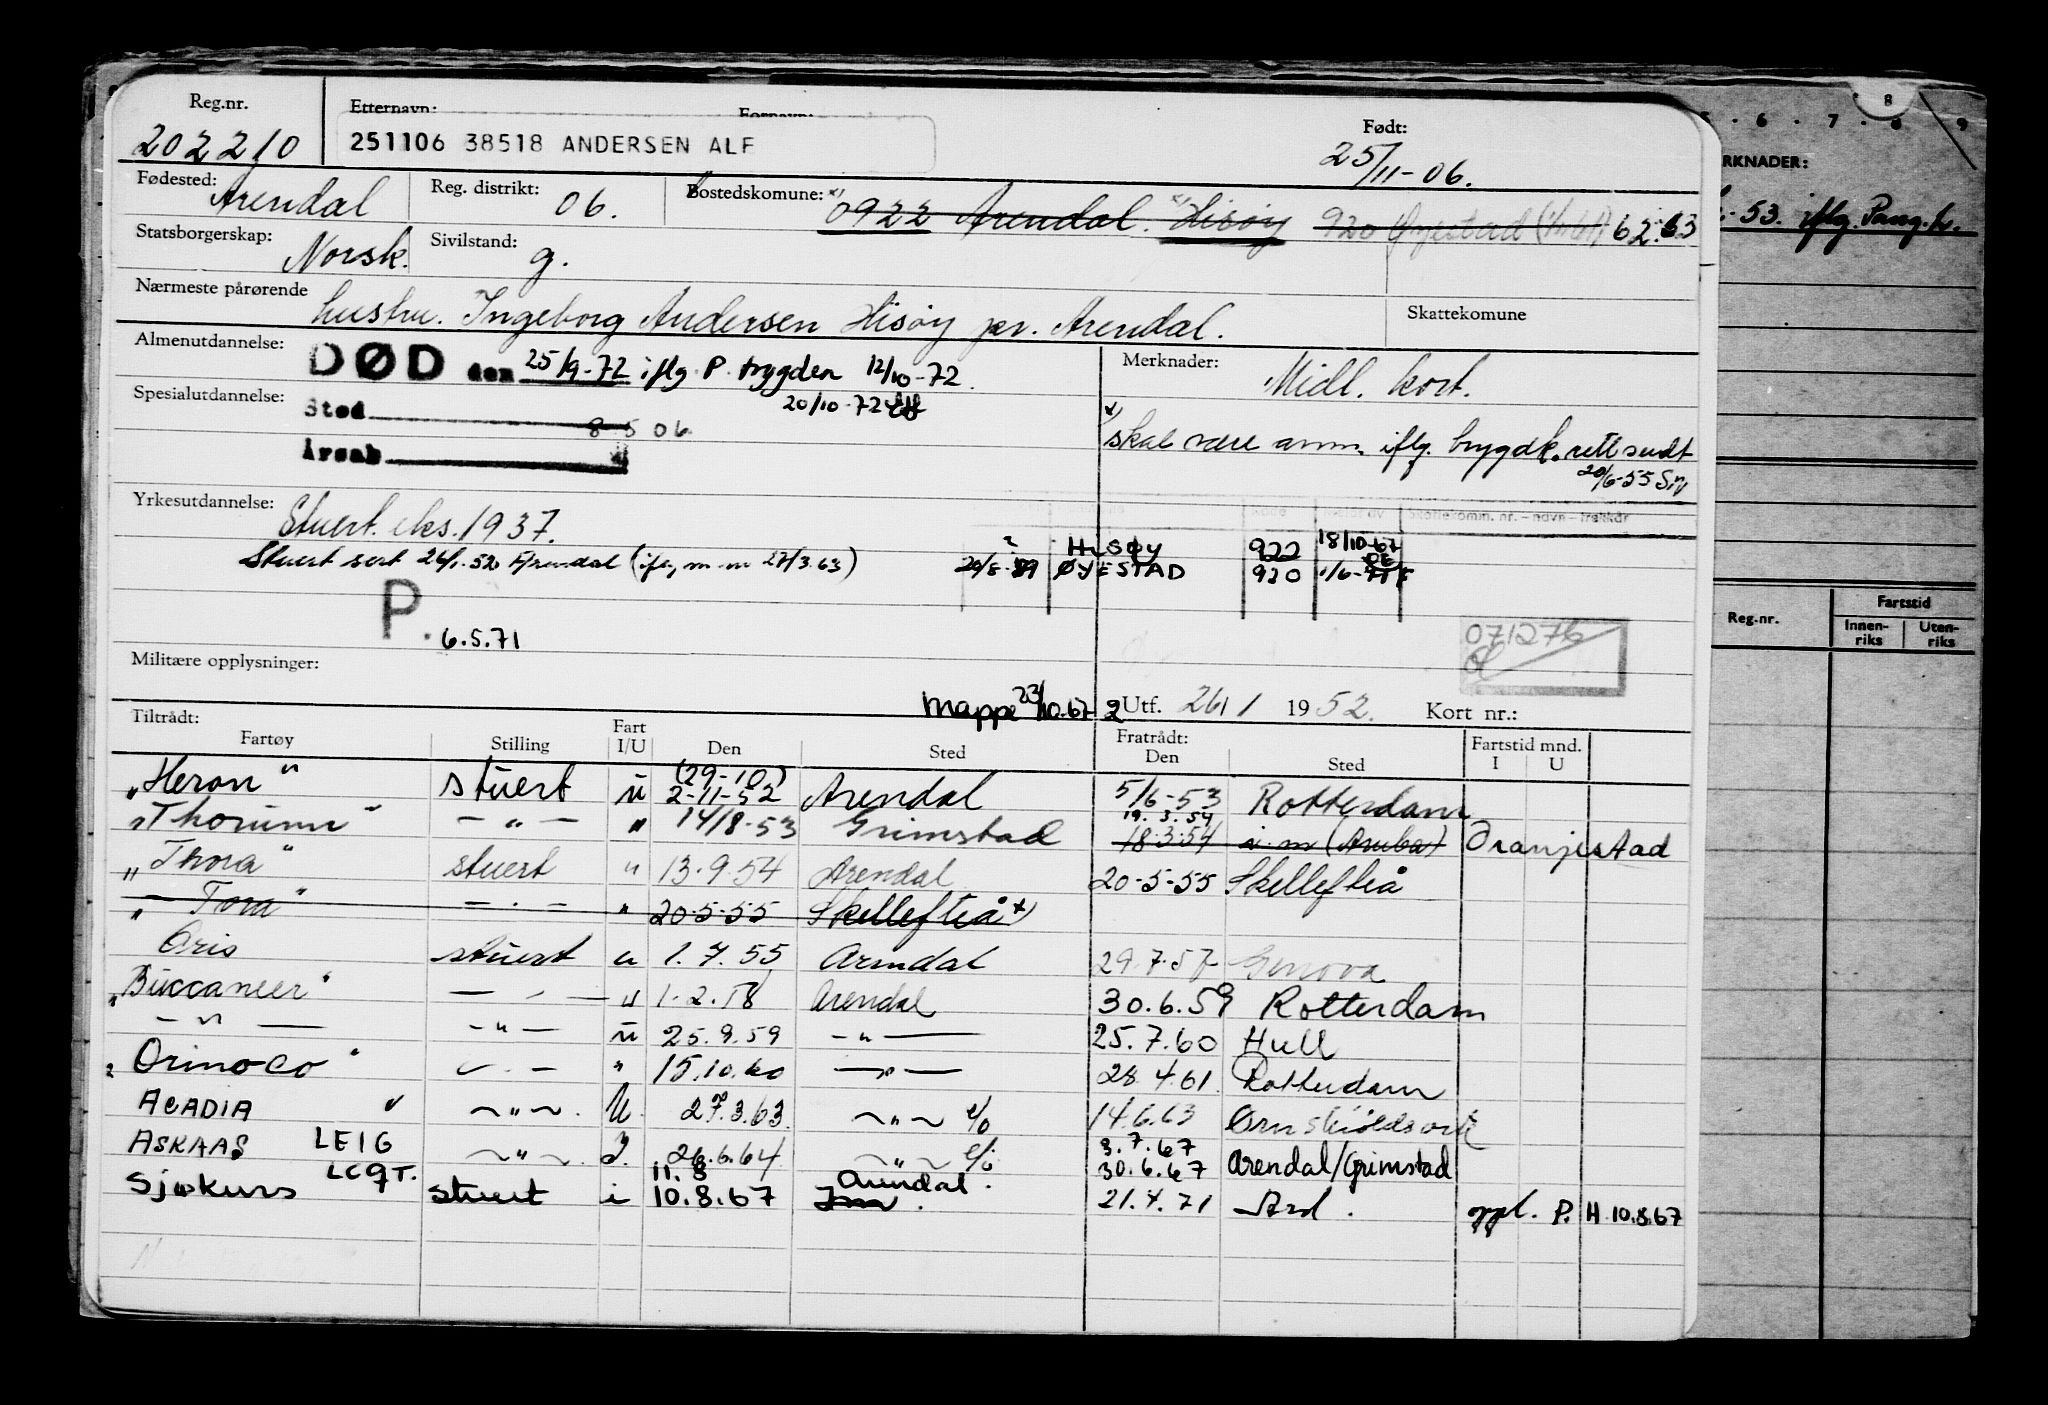 Reg.nr. Etternavn: Fornavn: Født:
202210 251106 38518 ANDERSEN ALF 25/11-06.
Fødested: Arendal Reg. distrikt: 06. Bostedskomune: x) 0922 Arendal. x) Hisøy 920 Øyestad 62.63
Statsborgerskap: Norsk. Sivilstand: g.
Nærmeste pårørende hustru. Ingeborg Andersen Hisøy pr. Arendal. Skattekomune
Almenutdannelse: DØD den 25/9-72 iflg. P. trygden 12/10-72. Merknader: Midl. kort.
20/10-72
Spesialutdannelse: Sted 8 5 06
x) skal være anm. iflg. trygdk. rett sendt
20/6-55
Årsak
Yrkesutdannelse: Stuert. eks. 1937.
Skattekomm. nr. – navn – trekkår
HISØY 922 18/10-67
Stuert sert 26/1.52 Arendal (ifl. m-m 27/3.63) ØYESTAD 920 1/6-71
P. 6.5.71
071276
Militære opplysninger:
Mappe 23/10.67 2 Utf. 26/1 1952. Kort nr.:
Tiltrådt: Fratrådt:
Fartøy Stilling Fart I/U Den Sted Den Sted Fartstid mnd. I U
"Heron" stuert u (29-10) 2-11-52 Arendal 5/6-53 Rotterdam
"Thorunn" — " — " 14/8-53 Grimstad 19.3.54 18.3.54 i m (Aruba) Oranjestad
"Thora" stuert " 13.9.54 Arendal 20-5-55 Skellefteå
" Tora" — " — " 20-5-55 Skellefteå x)
Oris stuert u 1.7.55 Arendal 29.7.57 Genova
"Buccaneer" — " — u 1.2.58 Arendal 30.6.59 Rotterdam
— " — — " — u 25.9.59 — " — 25.7.60 Hull
"Orinoco" — " — " 15.10.60 — " — 28.4.61. Rotterdam
ACADIA — " — . U. 27.3.63. — " — 14.6.63
ASKAAS LEIG — " — . I. 26.6.64 — " — 3.7.67 30.6.67 Arendal/Grimstad
Sjøkurs LCQT. stuert i 11.8 10.8.67 Arendal. 21.4.71 Ard. oppl. P. H 10.8.67
8
5 · 6 · 7 · 8 9
RKNADER:
-53. iflg.
Reg.nr. Fartstid
Innen-riks Uten-riks